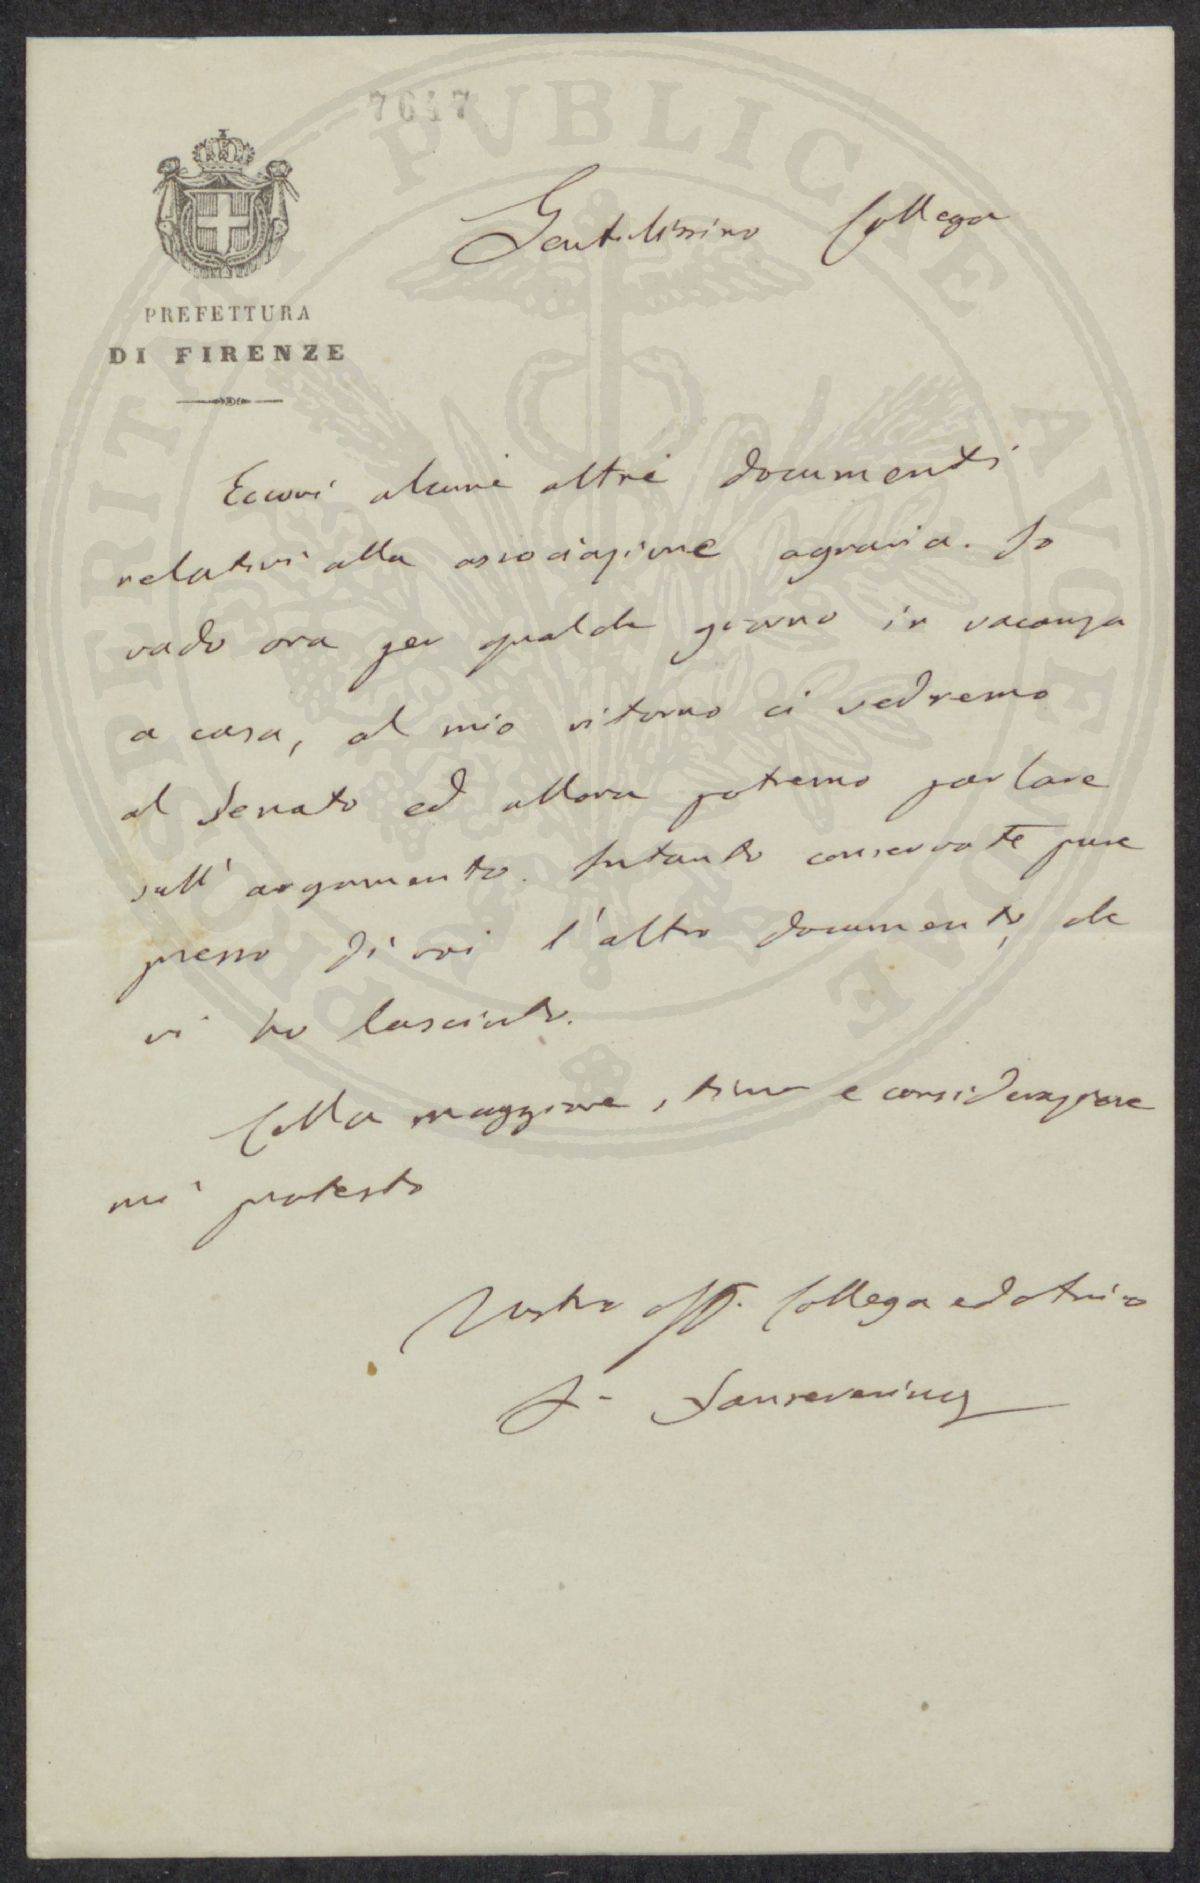 7647
PREFETTURA
DI FIRENZE
Gentilissimo Collega
Eccovi alcuni altri documenti
relativi alla associazione agraria. Io
vado ora per qualche giorno in vacanza
a casa, al mio ritorno ci vedremo
al Senato ed allora potremo parlare
sull'argomento. Intanto conservate pure
presso di voi l'altro documento che
vi ho lasciato.
Colla maggiore stima e considerazione
mi protesto
Vostro aff. Collega ed amico
F. Sanseverino
PROSPERITATI PUBLICAE AUGENDAE